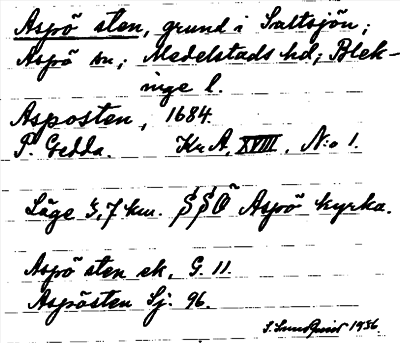 Aspö sten, grund i Saltsjön;
Aspö sn; Medelstads hd; Blek-
inge l.
Asposten, 1684.
P. Gedda. Kr A, XVIII, N:o 1.
Läge 3,7 km. SSÖ Aspö kyrka.
Aspö sten ek. G. 11.
Aspösten Sj. 96.
S. Lundquist 1936.